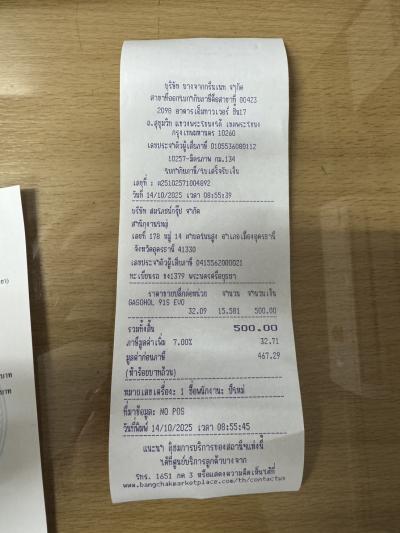 บริษัท บางจากกรีนเนท จำกัด
สาขาที่ออกใบกำกับภาษีคือสาขาที่ 00423
2098 อาคารเอ็มทาวเวอร์ ชั้น17
ถ.สุขุมวิท แขวงพระโขนงใต้ เขตพระโขนง
กรุงเทพมหานคร 10260
เลขประจำตัวผู้เสียภาษี 0105536080112
10257-มิตรภาพ กม.134
ใบกำกับภาษี/ใบเสร็จรับเงิน
เลขที่ : 025102571004892
วันที่ 14/10/2025 เวลา 08:55:39
บริษัท สมรภรณ์กรุ๊ป จำกัด
สำนักงานใหญ่
เลขที่ 178 หมู่ 14 ตำบลโนนสูง อำเภอเมืองอุดรธานี
จังหวัดอุดรธานี 41330
เลขประจำตัวผู้เสียภาษี 0415562000021
ทะเบียนรถ 1379 พระนครศรีอยุธยา
ราคาขายปลีกต่อหน่วย จำนวน จำนวนเงิน
GASOHOL 91S EVO
32.09 15.581 500.00
รวมทั้งสิ้น 500.00
ภาษีมูลค่าเพิ่ม 7.00% 32.71
มูลค่าก่อนภาษี 467.29
(ห้าร้อยบาทถ้วน)
หมายเลขเครื่อง: 1 ชื่อพนักงาน: ปีใหม่
ที่มาข้อมูล: NO POS
วันที่พิมพ์ 14/10/2025 เวลา 08:55:45
แนะนำ ชมการบริการของสถานีฯแห่งนี้
ได้ที่ศูนย์บริการลูกค้าบางจาก
โทร. 1651 กด 3 หรือแสดงความคิดเห็นได้ที่
www.bangchakmarketplace.com/th/contactus
บาท
บาท